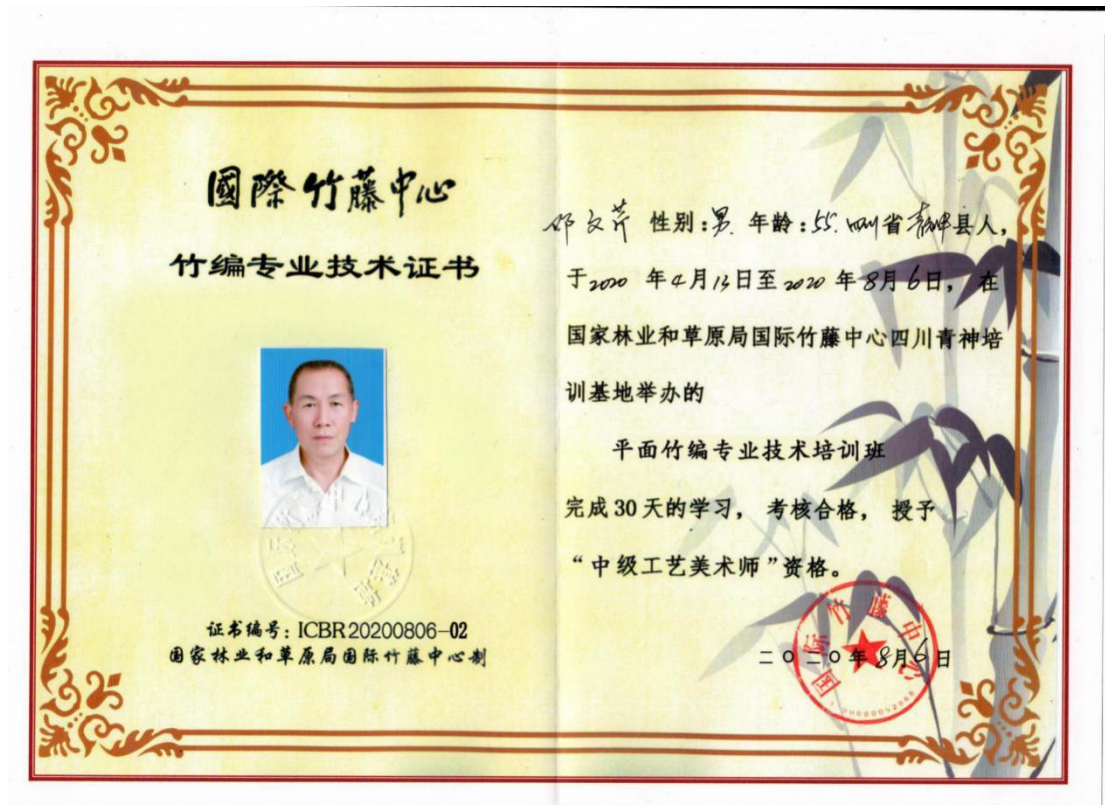 國際竹藤中心
竹编专业技术证书
证书编号：ICBR20200806-02
国家林业和草原局国际竹藤中心制
邓文芹 性别：男 年龄：55. 四川省青神县人，
于2020年4月13日至2020年8月6日，在
国家林业和草原局国际竹藤中心四川青神培
训基地举办的
平面竹编专业技术培训班
完成30天的学习，考核合格，授予
“中级工艺美术师”资格。
国际竹藤中心
二〇二〇年8月6日